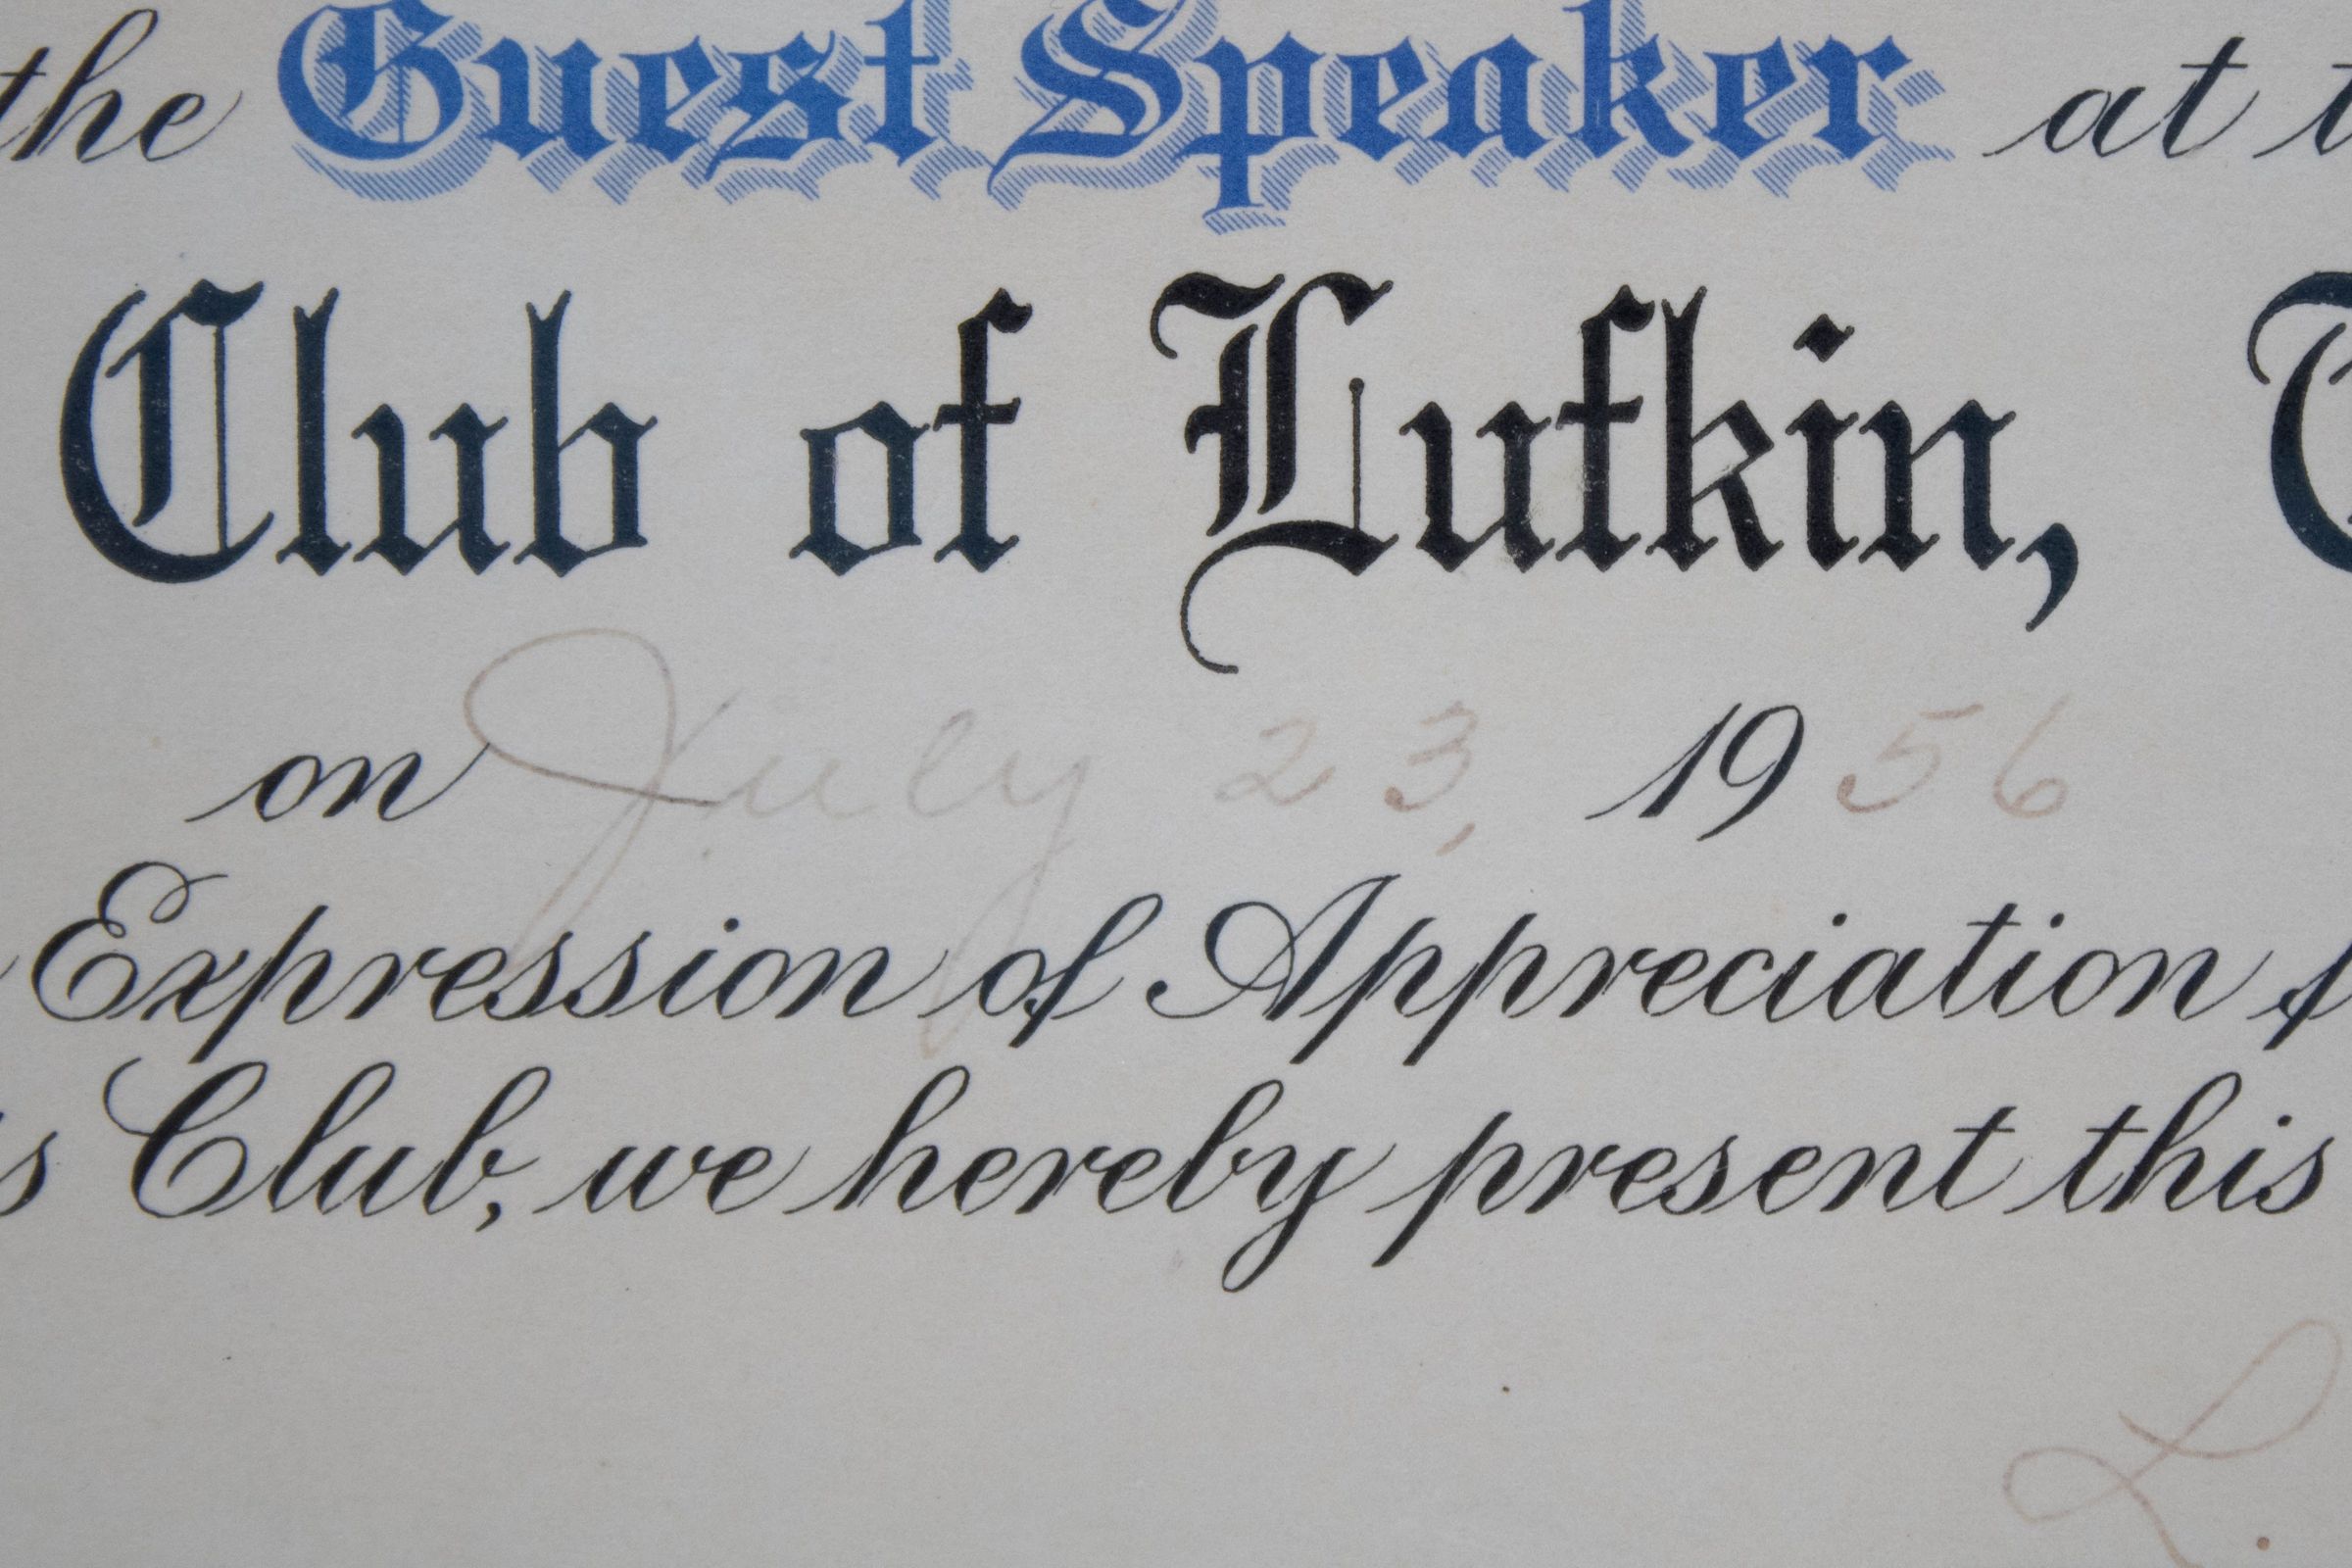 the Guest Speaker at t
Club of Lufkin, T
on July 23, 1956
Expression of Appreciation f
s Club, we hereby present this
L.